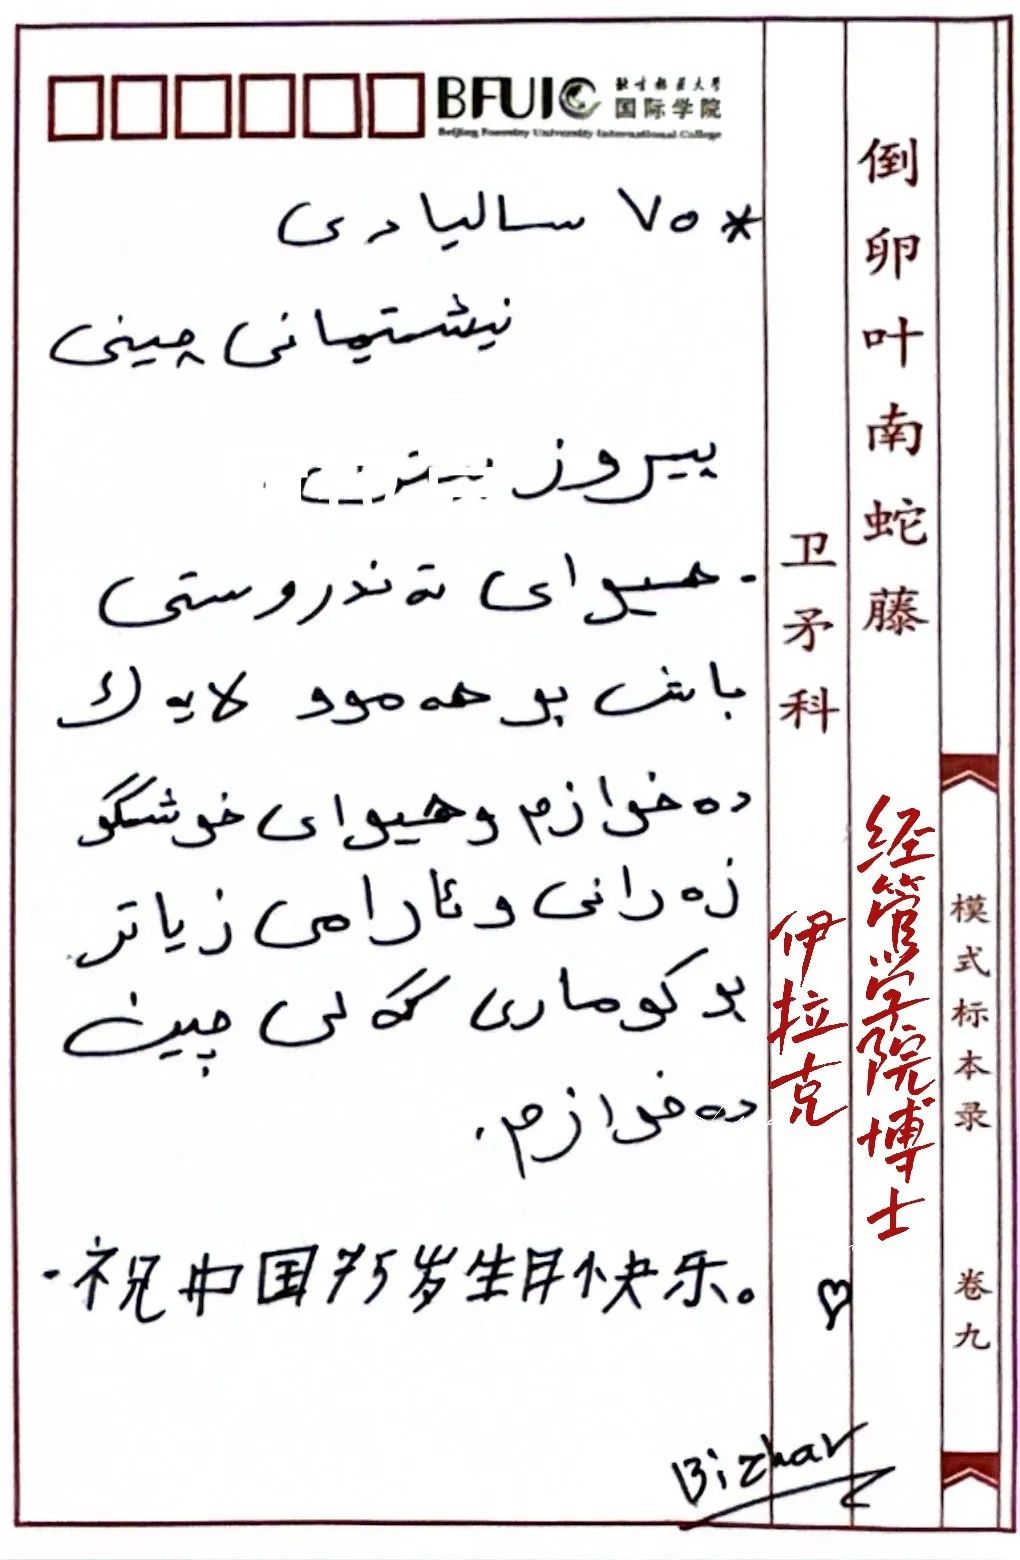 BFUIC
北京林业大学
国际学院
Beijing Forestry University International College
* ٧٥ ساليادى
نيشتيمانى چينى
پيروز
. هيواى تەندروستى
باش بو هەموو لايەك
دەخوازم وهيواى خوشگو
زەرانى و ئارامى زياتر
بو كومارى گەلى چين
دەخوازم.
·祝中国75岁生日快乐。
Bizhar
倒卵叶南蛇藤
卫矛科
经管学院博士
伊拉克
模式标本录
卷九